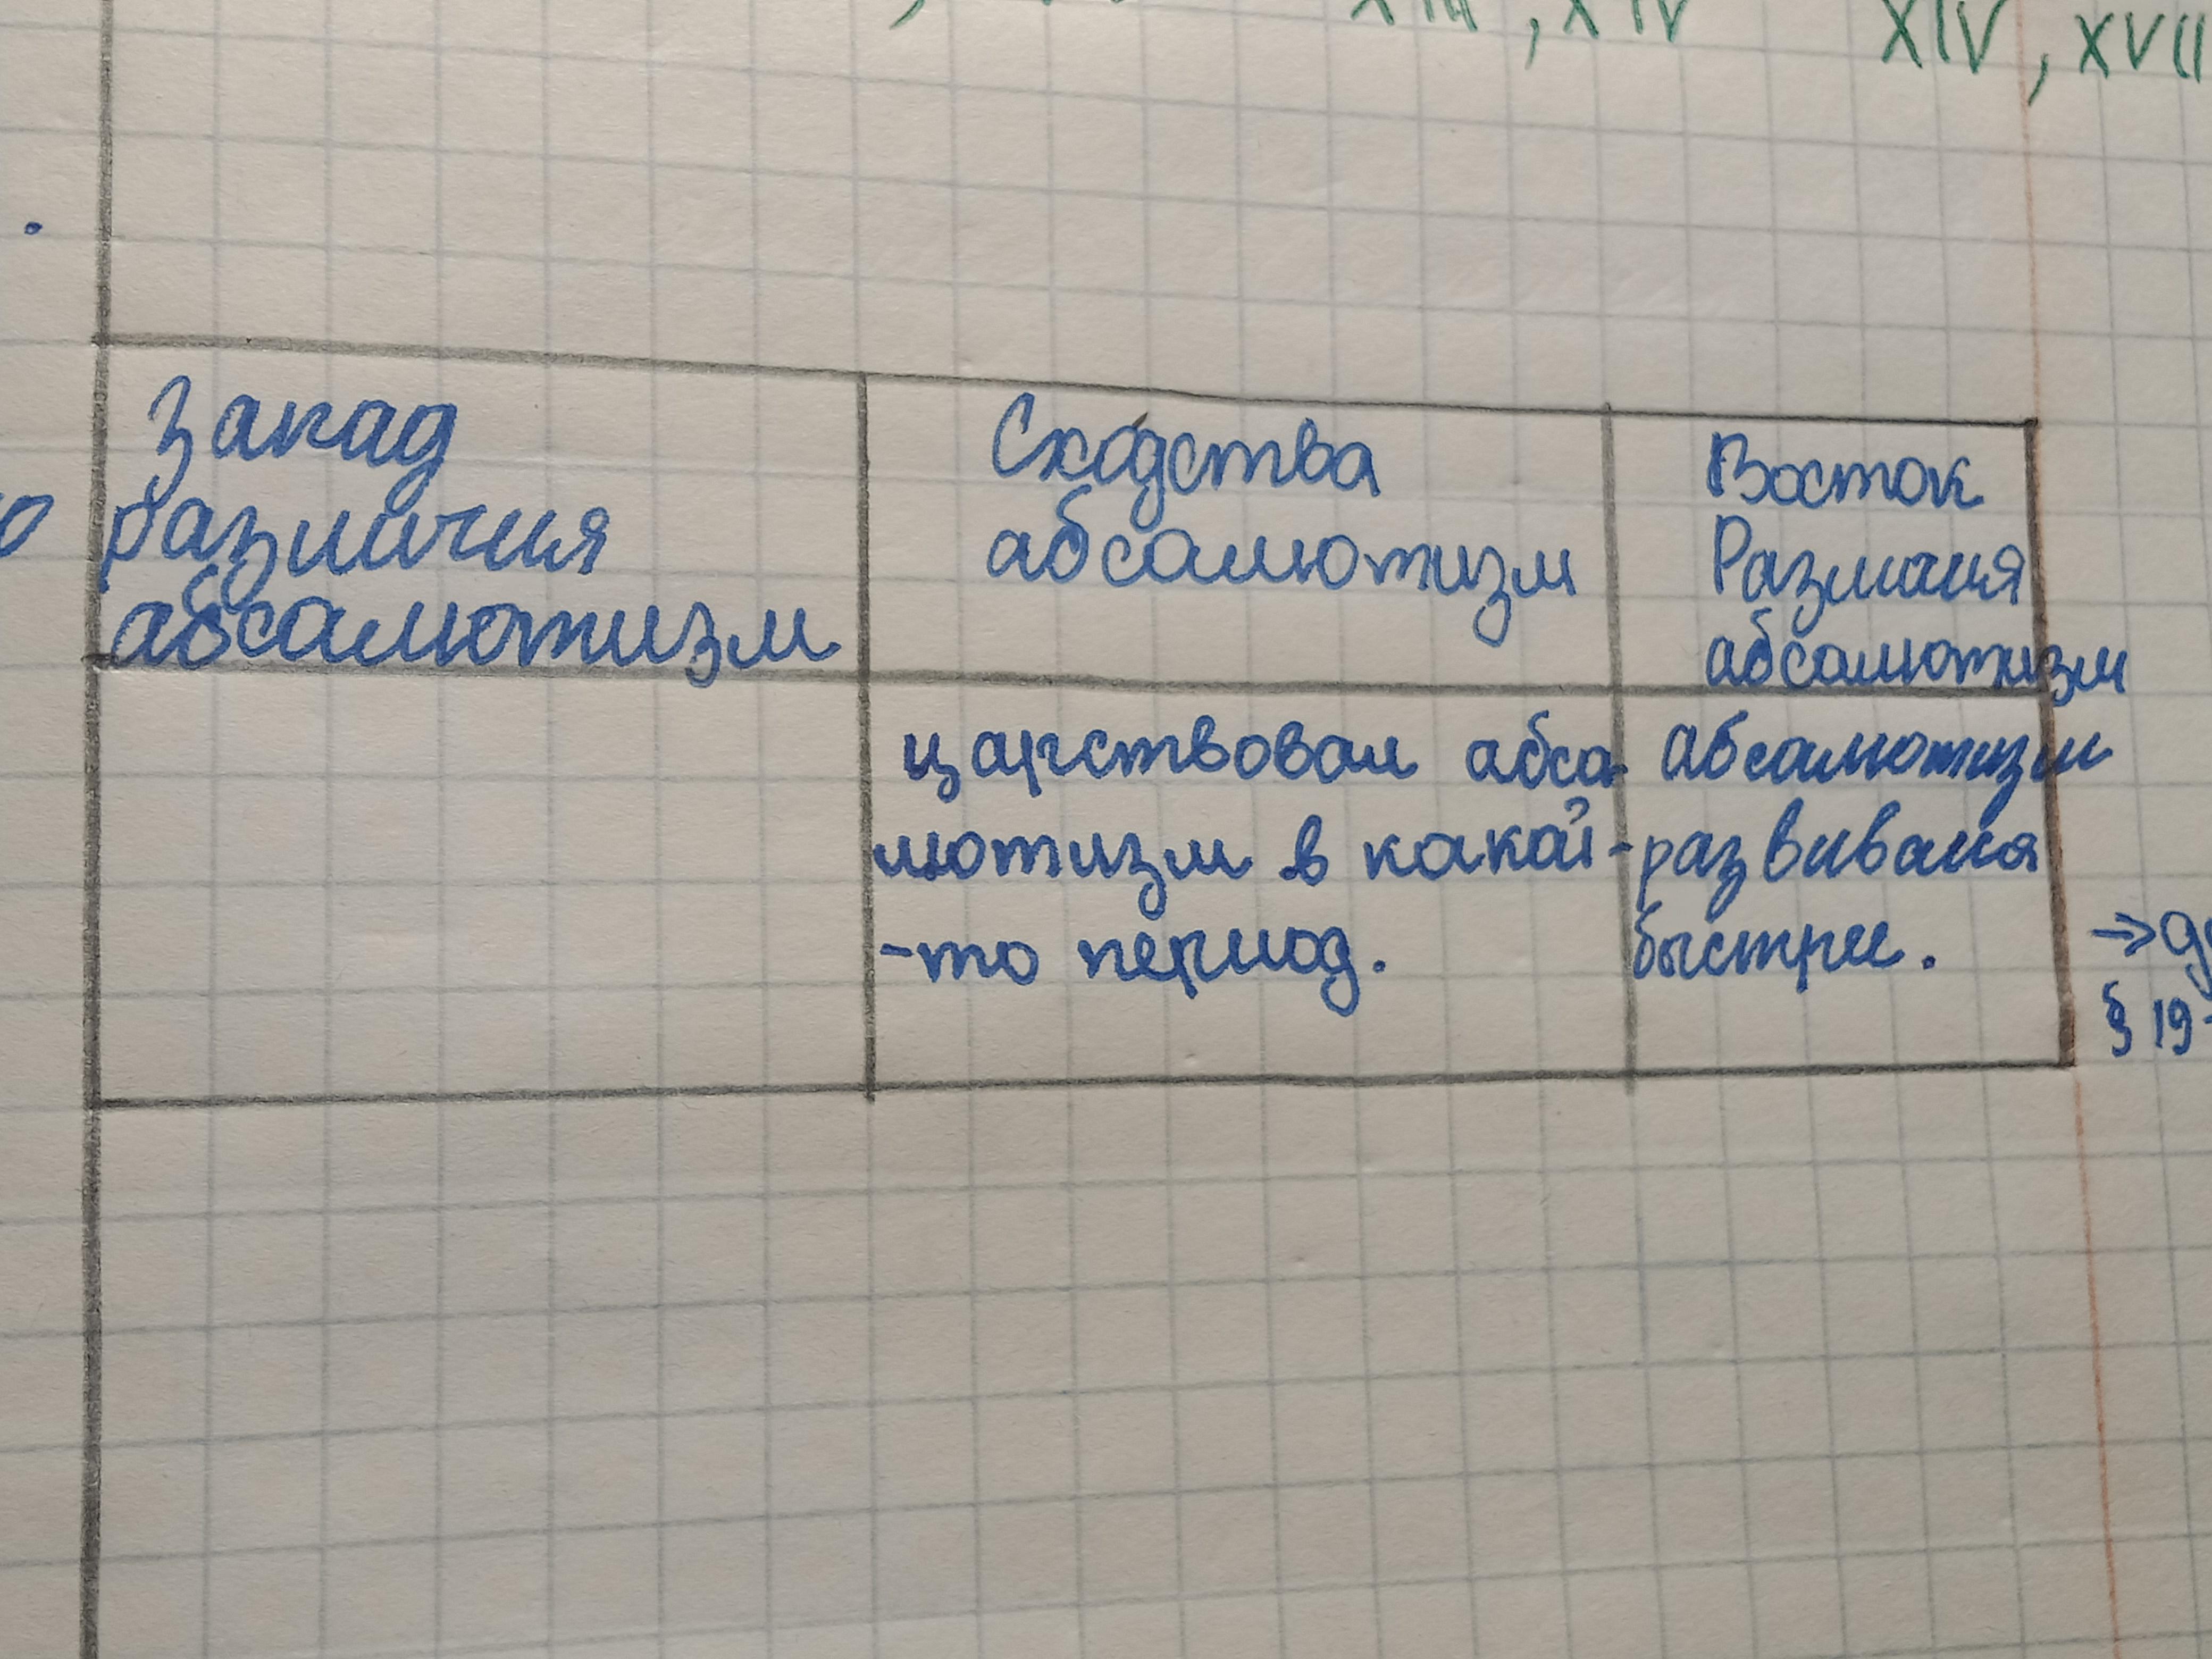 XIII, XIV XIV, XVII
Запад
различия
абсолютизм
Сходства
абсолютизм
Восток
Различия
абсолютизм
царствовал абсо-
лютизм в какой-
-то период.
абсолютизм
развивался
быстрее.
§ 19